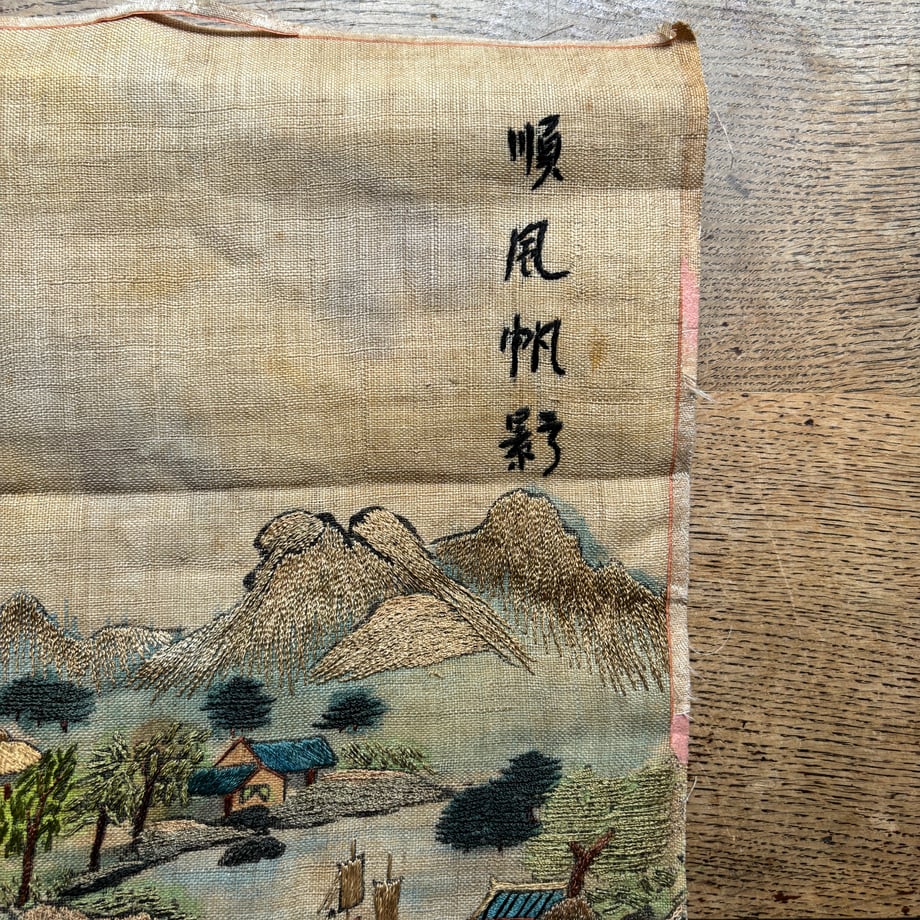 順風帆影